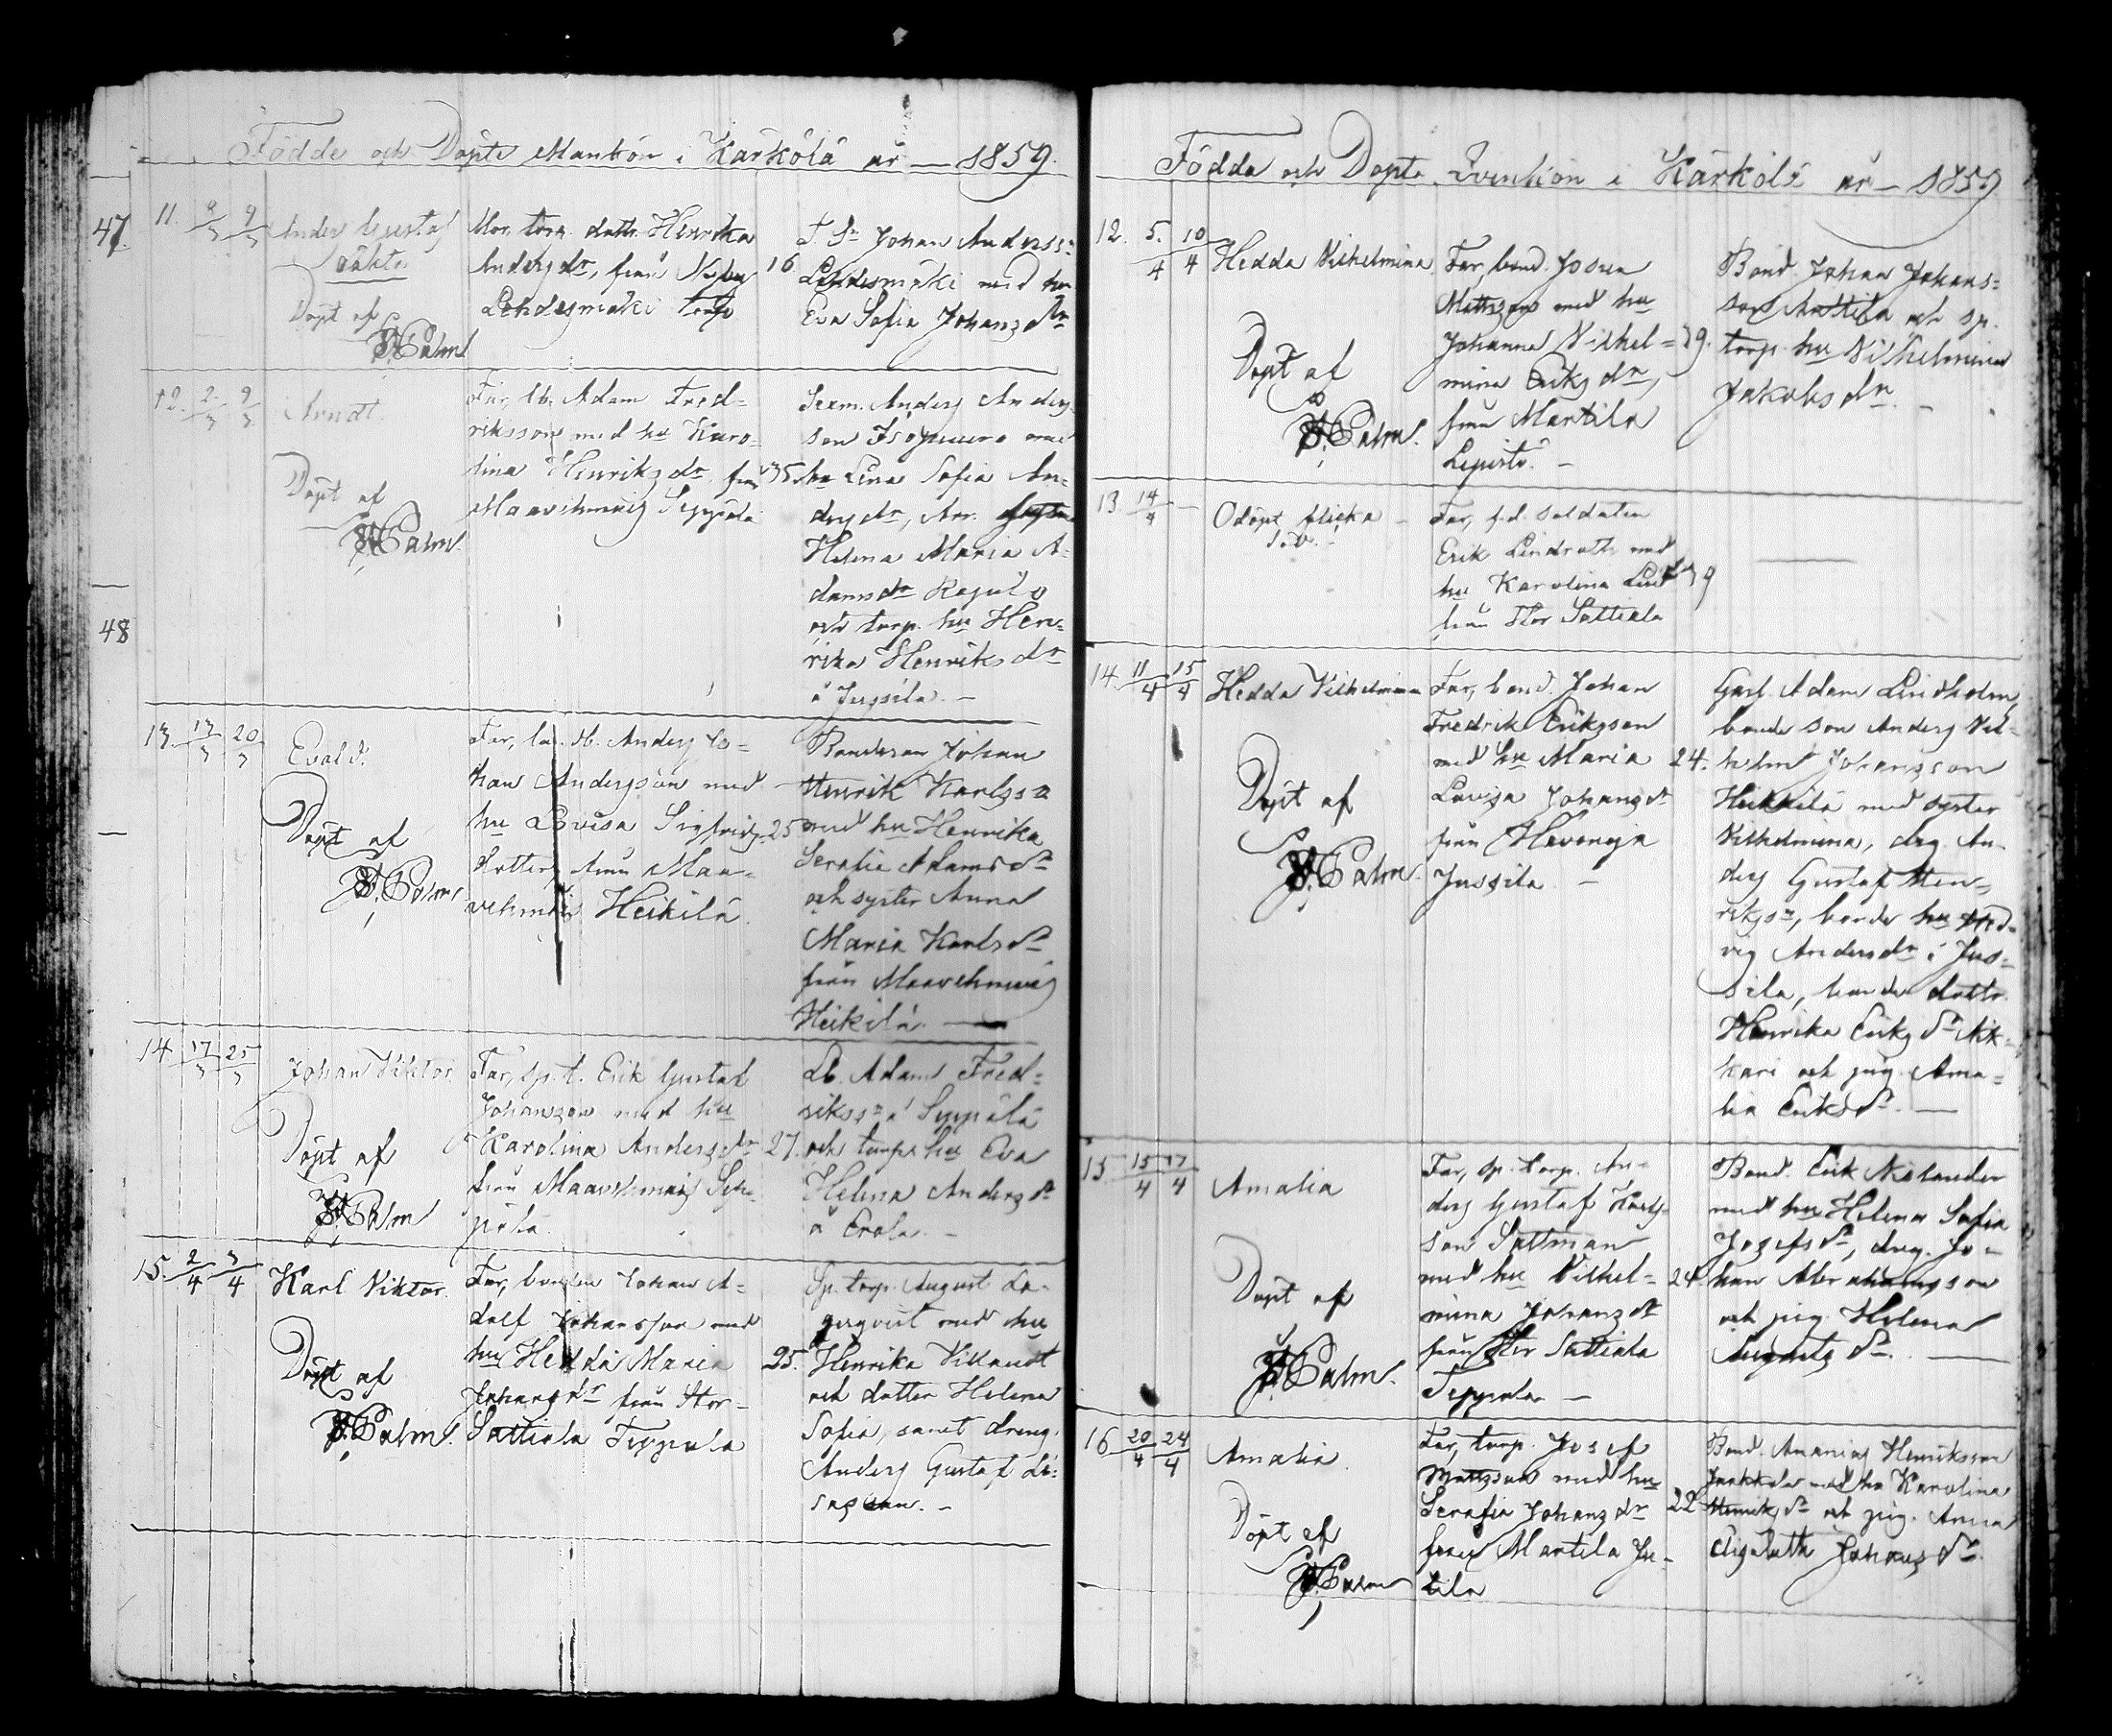 Födde och Döpte Mankön i Kärkölä år — 1859.
47.
11. 8/3 9/3
Anders Gustaf
oäkta
Döpt af
Palm
Mor, torp. dottr. Henrika
Andersdr, från
Lehdesmäki torp
16.
Johan Anderss:
Lehdesmäki med hu
Eva Sofia Johansdr
12. 2/3 9/3
Arndt.
Döpt af
Palm.
Far, lb. Adam Fred-
riksson med hu Karo-
lina Henriksdr från
Maavehmais Seppälä
35.
Sexm. Anders Anders-
son Isopuuro med
hu Lina Sofia An-
dersdr,
Helena Maria A-
damsdr
och torp. hu Hen-
rika Henriksdr
å Jussila. —
48
13. 13/3 20/3
Evald.
Döpt af
Palm.
Far, lb. Anders Jo-
han Andersson med
hu Lovisa Sigfrids-
dotter, från Maa-
vehmais Heikilä.
25
Bondeson Johan
Henrik Karlsson
med hu Henrika
Serafia Adamsdr
och syster Anna
Maria Karlsdr
från Maavehmais
Heikilä. —
14. 17/3 25/3
Johan Viktor.
Döpt af
Palm
Far, sp. t. Erik Gustaf
Johansson med hu
Karolina Andersdr
från Maavehmais Sep-
pälä.
27.
Lb. Adam Fred-
rikssn å Seppälä
och torps hu Eva
Helena Andersdr
å Erola. —
15. 2/4 3/4
Karl Viktor.
Döpt af
Palm.
Far, bonden Johan A-
dolf Johansson med
hu Hedda Maria
Johansdr från Stor-
Sattiala Teppala
25.
Sp. torp. August Lö-
gqvist med hu
Henrika
och dotter Helena
Sofia, samt dräng.
Anders Gustaf

Födda och Döpta Qvinkön i Kärkölä år — 1859
12. 5/4 10/4
Hedda Vilhelmina
Döpt af
Palm.
Far, bond. Josua
Mattsson med hu
Johanna Vilhel-
mina Eriksdr,
från Martila
Lepistö. —
39.
Bond. Johan Johans-
son Anttila och sp.
torp. hu Vilhelmina
Jakobsdr. —
13 14/4 —
Odöpt flicka —
Far, f.d. soldaten
Erik Lindroth med
hu Karolina
från Stor Sattiala
39
14. 11/4 15/4
Hedda Vilhelmina
Döpt af
Palm.
Far, bond. Johan
Fredrik Eriksson
med hu Maria
Lovisa Johansdr
från Hevonoja
Jussila. —
24.
Gast. Adam Lindholm,
bonde son Anders Vil-
helm Johansson
Heikkilä med syster
Vilhelmina, drg. An-
ders Gustaf Hen-
rikssn, bonde hu Hed-
vig Andersdr i Jus-
sila, bonde dottr.
Henrika Eriksdr Nik-
kari och pig. Ama-
lia Eriksdr. —
15. 15/4 17/4
Amalia
Döpt af
Palm.
Far, sp. torp. An-
ders Gustaf Karls-
son Sattman
med hu Vilhel-
mina Johansdr
från Stor Sattiala
Teppala —
24.
Bond. Erik Nelander
med hu Helena Sofia
Josefsdr, drg. Jo-
han Abrahamsson
och pig. Helena
Augustsdr. —
16 20/4 24/4
Amalia.
Döpt af
Palm
Far, torp. Josef
Mattsson med hu
Serafia Johansdr
från Martila Ju-
tila
22
Bond. Ananias Henriksson
Jaakkola med hu Karolina
Henriksdr och pig. Anna
Elisabeth Johansdr.